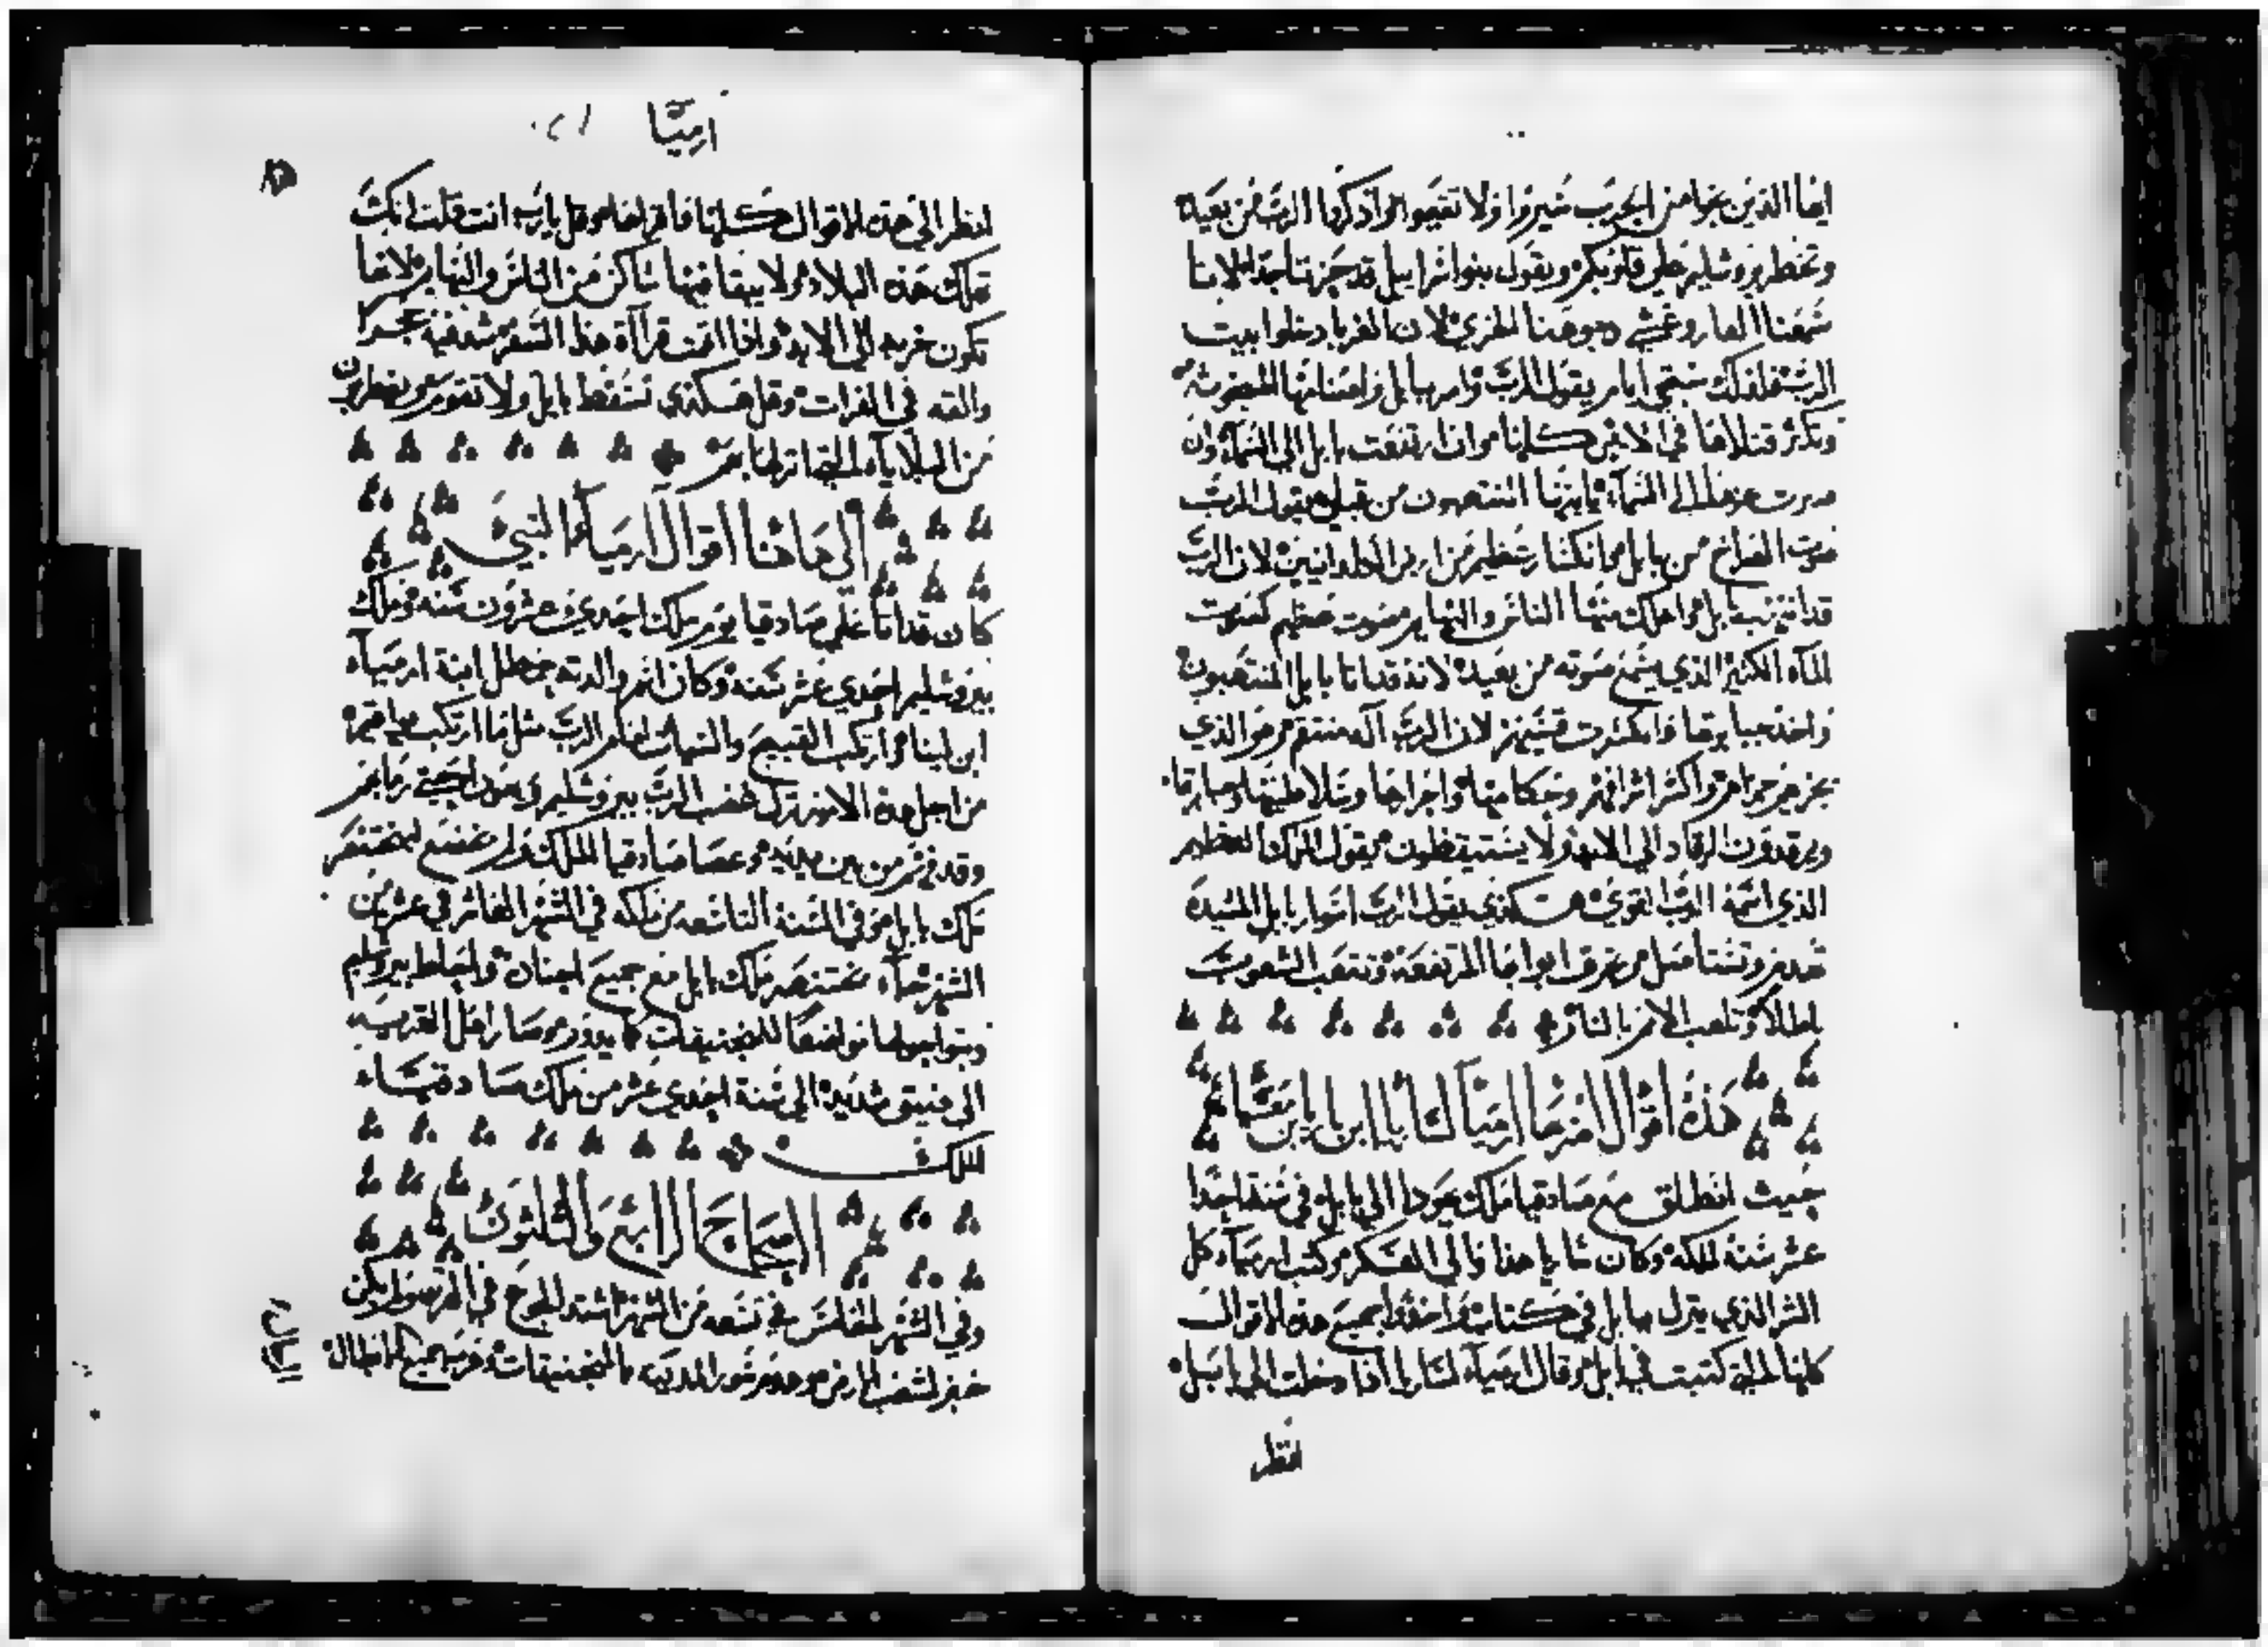 ايها الذين نجوا من الحرب سيروا ولا تقيموا واذكروا الرب من بعيد
وتخطر يروشليم على قلوبكم ويقول بنوا اسراييل قد حزنا جدا لاننا
سمعنا العار وغشي وجوهنا الخزي لان الغربا دخلوا بيت
الرب فلذلك ستجي ايام يقول الرب وامر ببابل واصنامها المنحوته
وتكثر قتلاها في الارض كلها وان ارتفعت بابل الي السماء وان
صيرت عزها الي السماء ياتيها المنتهبون من قبلي يقول الرب
صوت الصراخ من بابل وانكسار عظيم من ارض الكلدانيين لان الرب
قد انتهب بابل واهلك منها الناس والبهايم صوت عظيم كصوت
المآء الكثير الذي يسمع صوته من بعيد لانه قد اتا بابل المنتهبون
واخذ جبابرتها وانكسرت قسيهم لان الرب اله منتقم وهو الذي
يجزيهم جزاهم واكثر اشرافهم وحكامها واجرامها وسلاطينها وجبابرتها
ويرقدون الرقاد الي الابد ولا يستيقظون يقول الملك العظيم
الذي اسمه الرب القوي هكذي يقول الرب اسوار بابل المشيدة
تهدم وتستاصل وتحرق ابوابها المرتفعة وتتعب الشعوب
باطلا وتلعب الامم بالنار
هذه اقوال امر بها ارميا لشايا ابن يارين معشيا
حيث انطلق مع صادقيا ملك يهودا الي بابل في سنة احدا
عشر سنة لملكه وكان شايا هذا والي العسكر وكتب ارمياء كل
الشر الذي ينزل ببابل في كتاب واخذوا جميع هذه الاقوال
كلها التي كتبت في بابل وقال ارمياء لشايا اذا دخلت الي بابل
انظر
ارميا
انظر الي هذه الاقوال كلها فاقراها وقل يارب انت قلت انك
تهلك هذه البلاد ولا يبقا فيها ساكن من الناس والبهايم لانها
تكون خربه الي الابد واذا اتممت قرآآة هذا السفر شد فيه حجرا
والقه في الفرات وقل هكذي تسقط بابل ولا تقوم
من البلايآء التي انزلها بهم
الي هاهنا اقوال ارمياء النبي
كان قد اتا علي صادقيا يوم ملك احدي وعشرون سنه وملك
بيروشليم احدي عشر سنه وكان اسم والدته حمطل ابنة ارمياء
ابن لبنا وارتكب القبيح والسيات امام الرب مثل ما ارتكب يواقيم
من اجل هذه الامور نزل غضب الرب بيروشليم ويهودا حتي رماهم
وقدفهم من بين يديه وعصا صادقيا الملك ولم يخضع لبختنصر
ملك بابل وفي السنة التاسعه من ملكه في الشهر العاشر في عشر من
الشهر جاء بختنصر ملك بابل مع جميع اجناده واحاط بيروشليم
وبنوا حولها مواضعا للمنجنيقات كما يدور وصار اهل القريه
الي ضيق شديد الي سنة احدي عشر من ملك صادقيا
الملك
الاصحاح الرابع والثلثون
وفي الشهر الخامس في تسعه من الشهر اشتد الجوع في القريه ولم يكن
خبز لشعب الارض وهدم سور المدينه بالمنجنيقات وهرب جميع الابطال